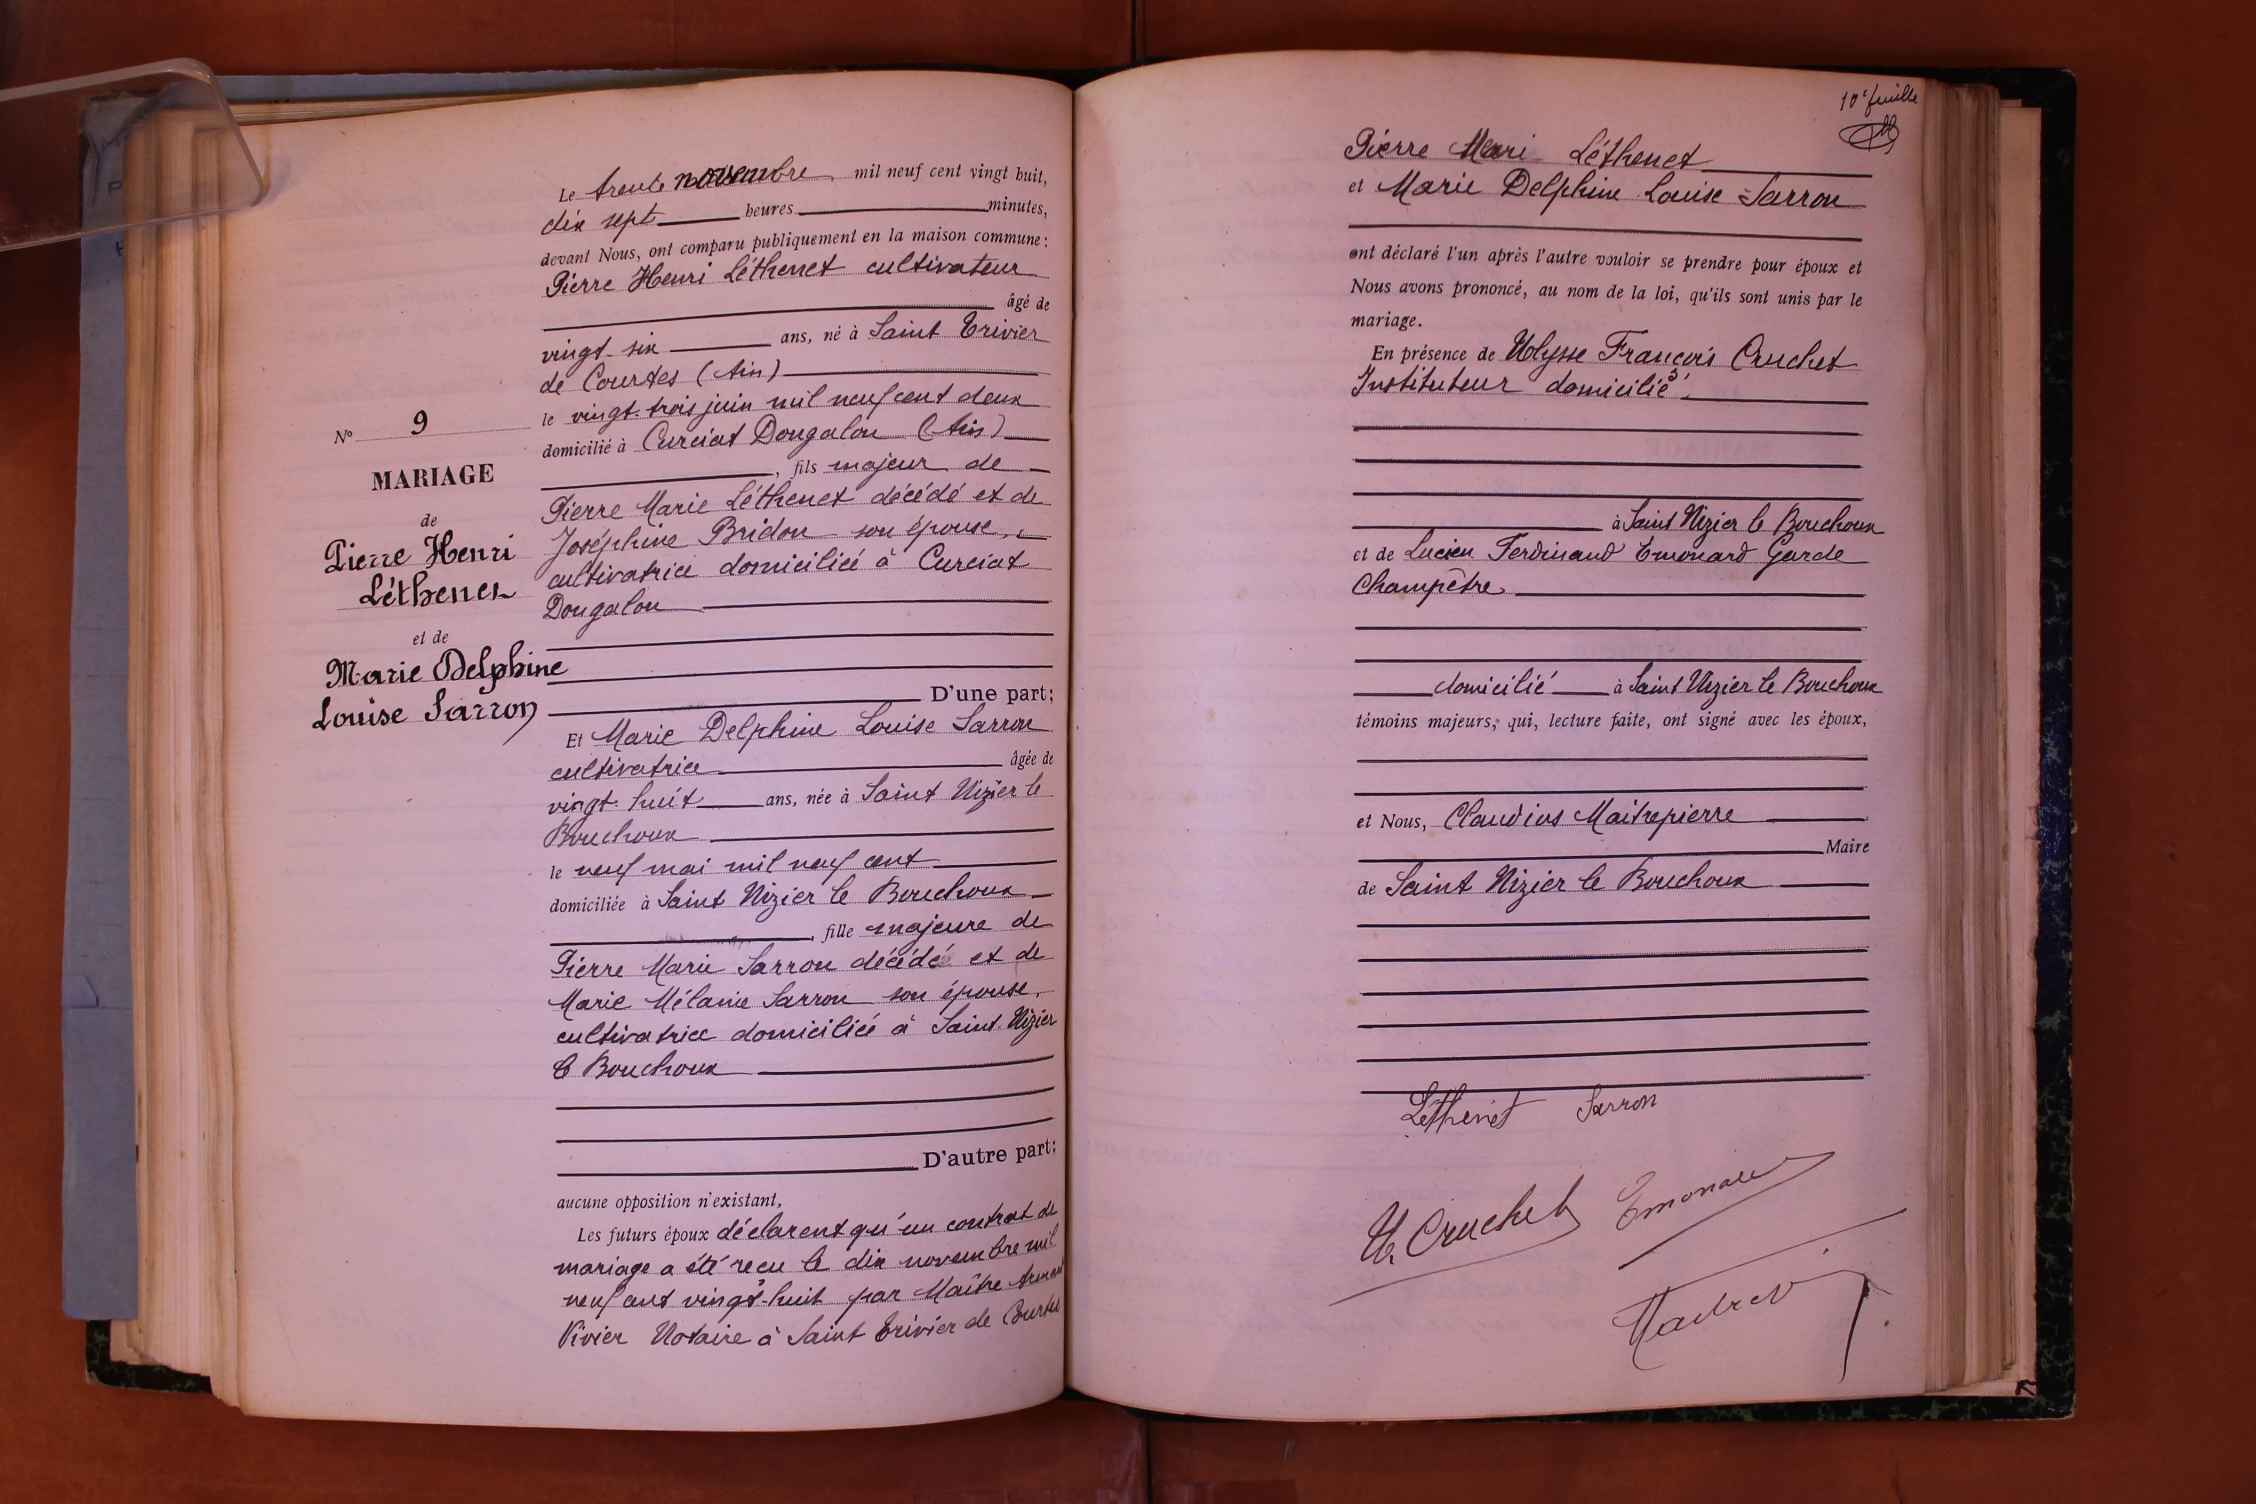 Le trente novembre mil neuf cent vingt huit,
dix sept heures minutes,
devant Nous, ont comparu publiquement en la maison commune :
Pierre Henri Léthenet cultivateur
âgé de
vingt-six ans, né à Saint Trivier
de Courtes (Ain)
le vingt-trois juin mil neuf cent deux
domicilié à Curciat Dongalon (Ain)
, fils majeur de
Pierre Marie Léthenet décédé et de
Joséphine Bridon son épouse,
cultivatrice domiciliée à Curciat
Dongalon
D'une part;
N° 9
MARIAGE
de
Pierre Henri
Léthenet
et de
Marie Delphine
Louise Sarron
Et Marie Delphine Louise Sarron
cultivatrice âgée de
vingt-huit ans, née à Saint Nizier le
Bouchoux
le neuf mai mil neuf cent
domiciliée à Saint Nizier le Bouchoux
, fille majeure de
Pierre Marie Sarron décédé et de
Marie Mélanie Sarron son épouse,
cultivatrice domiciliée à Saint-Nizier
le Bouchoux
D'autre part;
aucune opposition n'existant,
Les futurs époux déclarent qu'un contrat de
mariage a été reçu le dix novembre mil
neuf cent vingt-huit par Maître
Vivier Notaire à Saint Trivier de Courtes
10e feuille
Pierre Léthenet
et Marie Delphine Louise Sarron
ont déclaré l'un après l'autre vouloir se prendre pour époux et
Nous avons prononcé, au nom de la loi, qu'ils sont unis par le
mariage.
En présence de Ulysse François Cruchet
Instituteur domicilié
à Saint Nizier le Bouchoux
et de Lucien Ferdinand Emonard Garde
Champêtre
domicilié à Saint Nizier le Bouchoux
témoins majeurs, qui, lecture faite, ont signé avec les époux,
et Nous, Claudius Maitrepierre
Maire
de Saint Nizier le Bouchoux
Léthenet Sarron
U. Cruchet Emonard